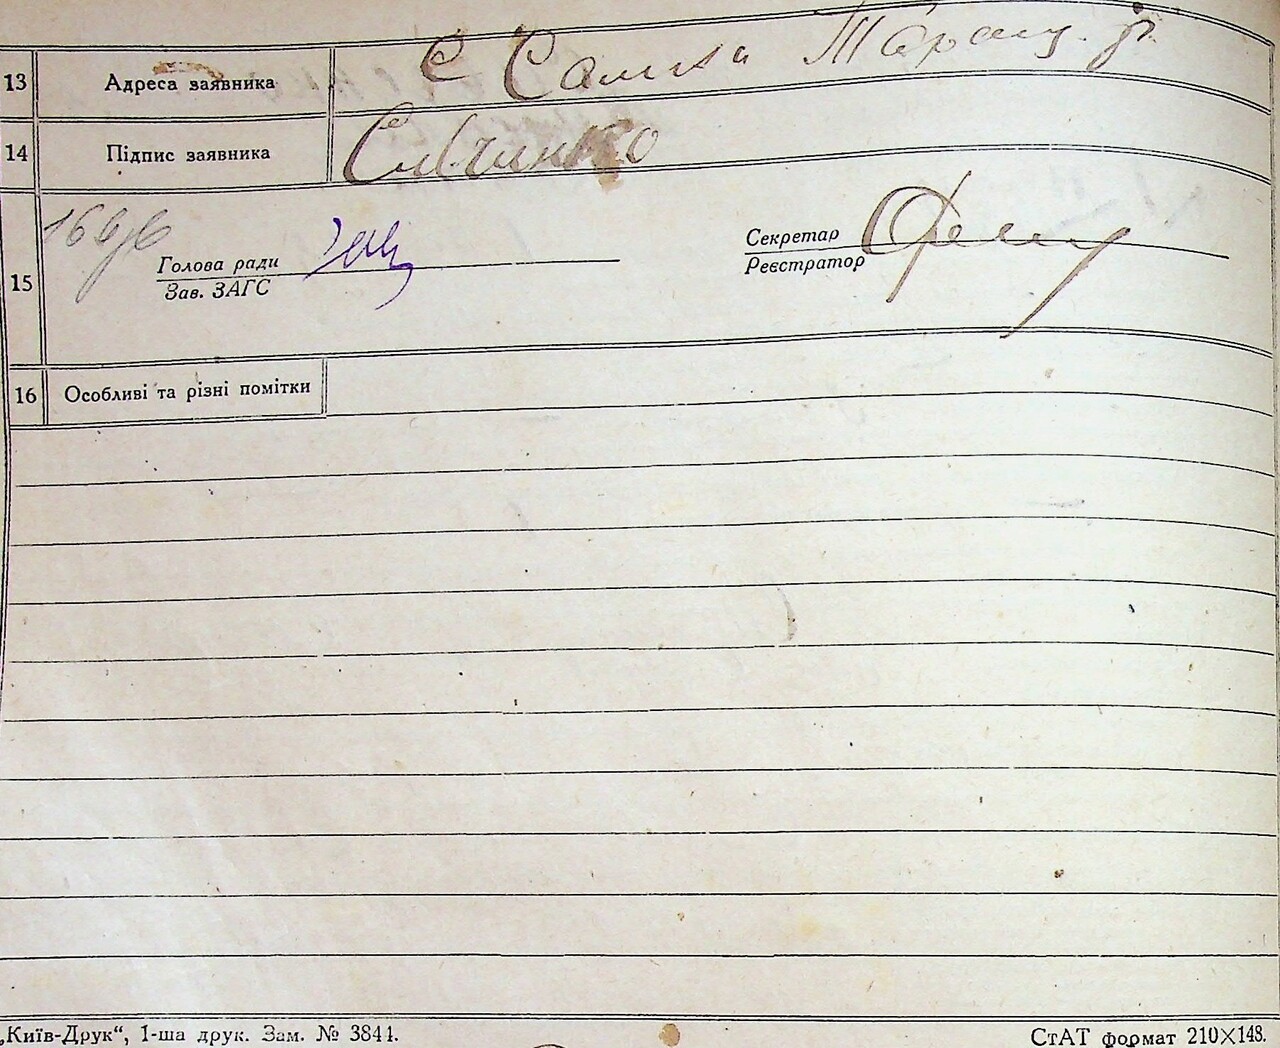 13 Адреса заявника с Салиха Таращ. р.
14 Підпис заявника Сивченко
Голова ради
Секретар
15 Зав. ЗАГС
Реєстратор
16 Особливі та різні помітки
„Київ-Друк“, 1-ша друк. Зам. № 3844. СтАТ формат 210×148.